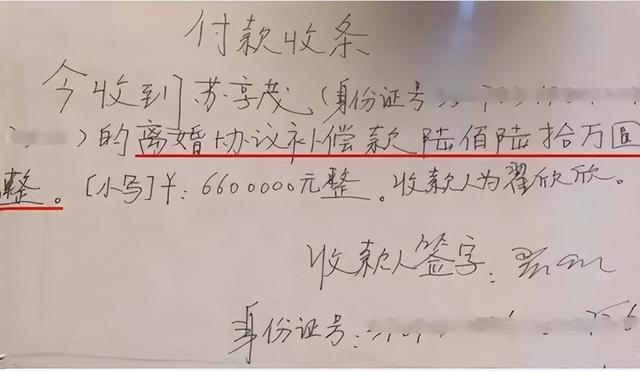 付款收条
今收到苏享茂(身份证号
)的离婚协议补偿款陆佰陆拾万圆
整。[小写]¥:6600000元整。收款人为翟欣欣。
收款人签字:
身份证号: